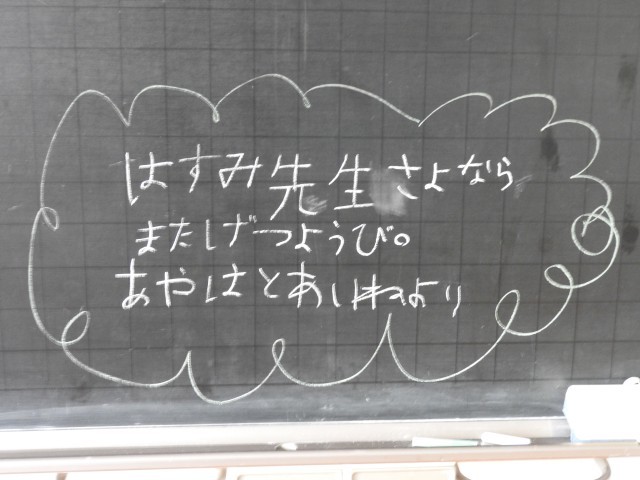 はすみ先生さよなら
またしげつようび。
あやはとあいねより